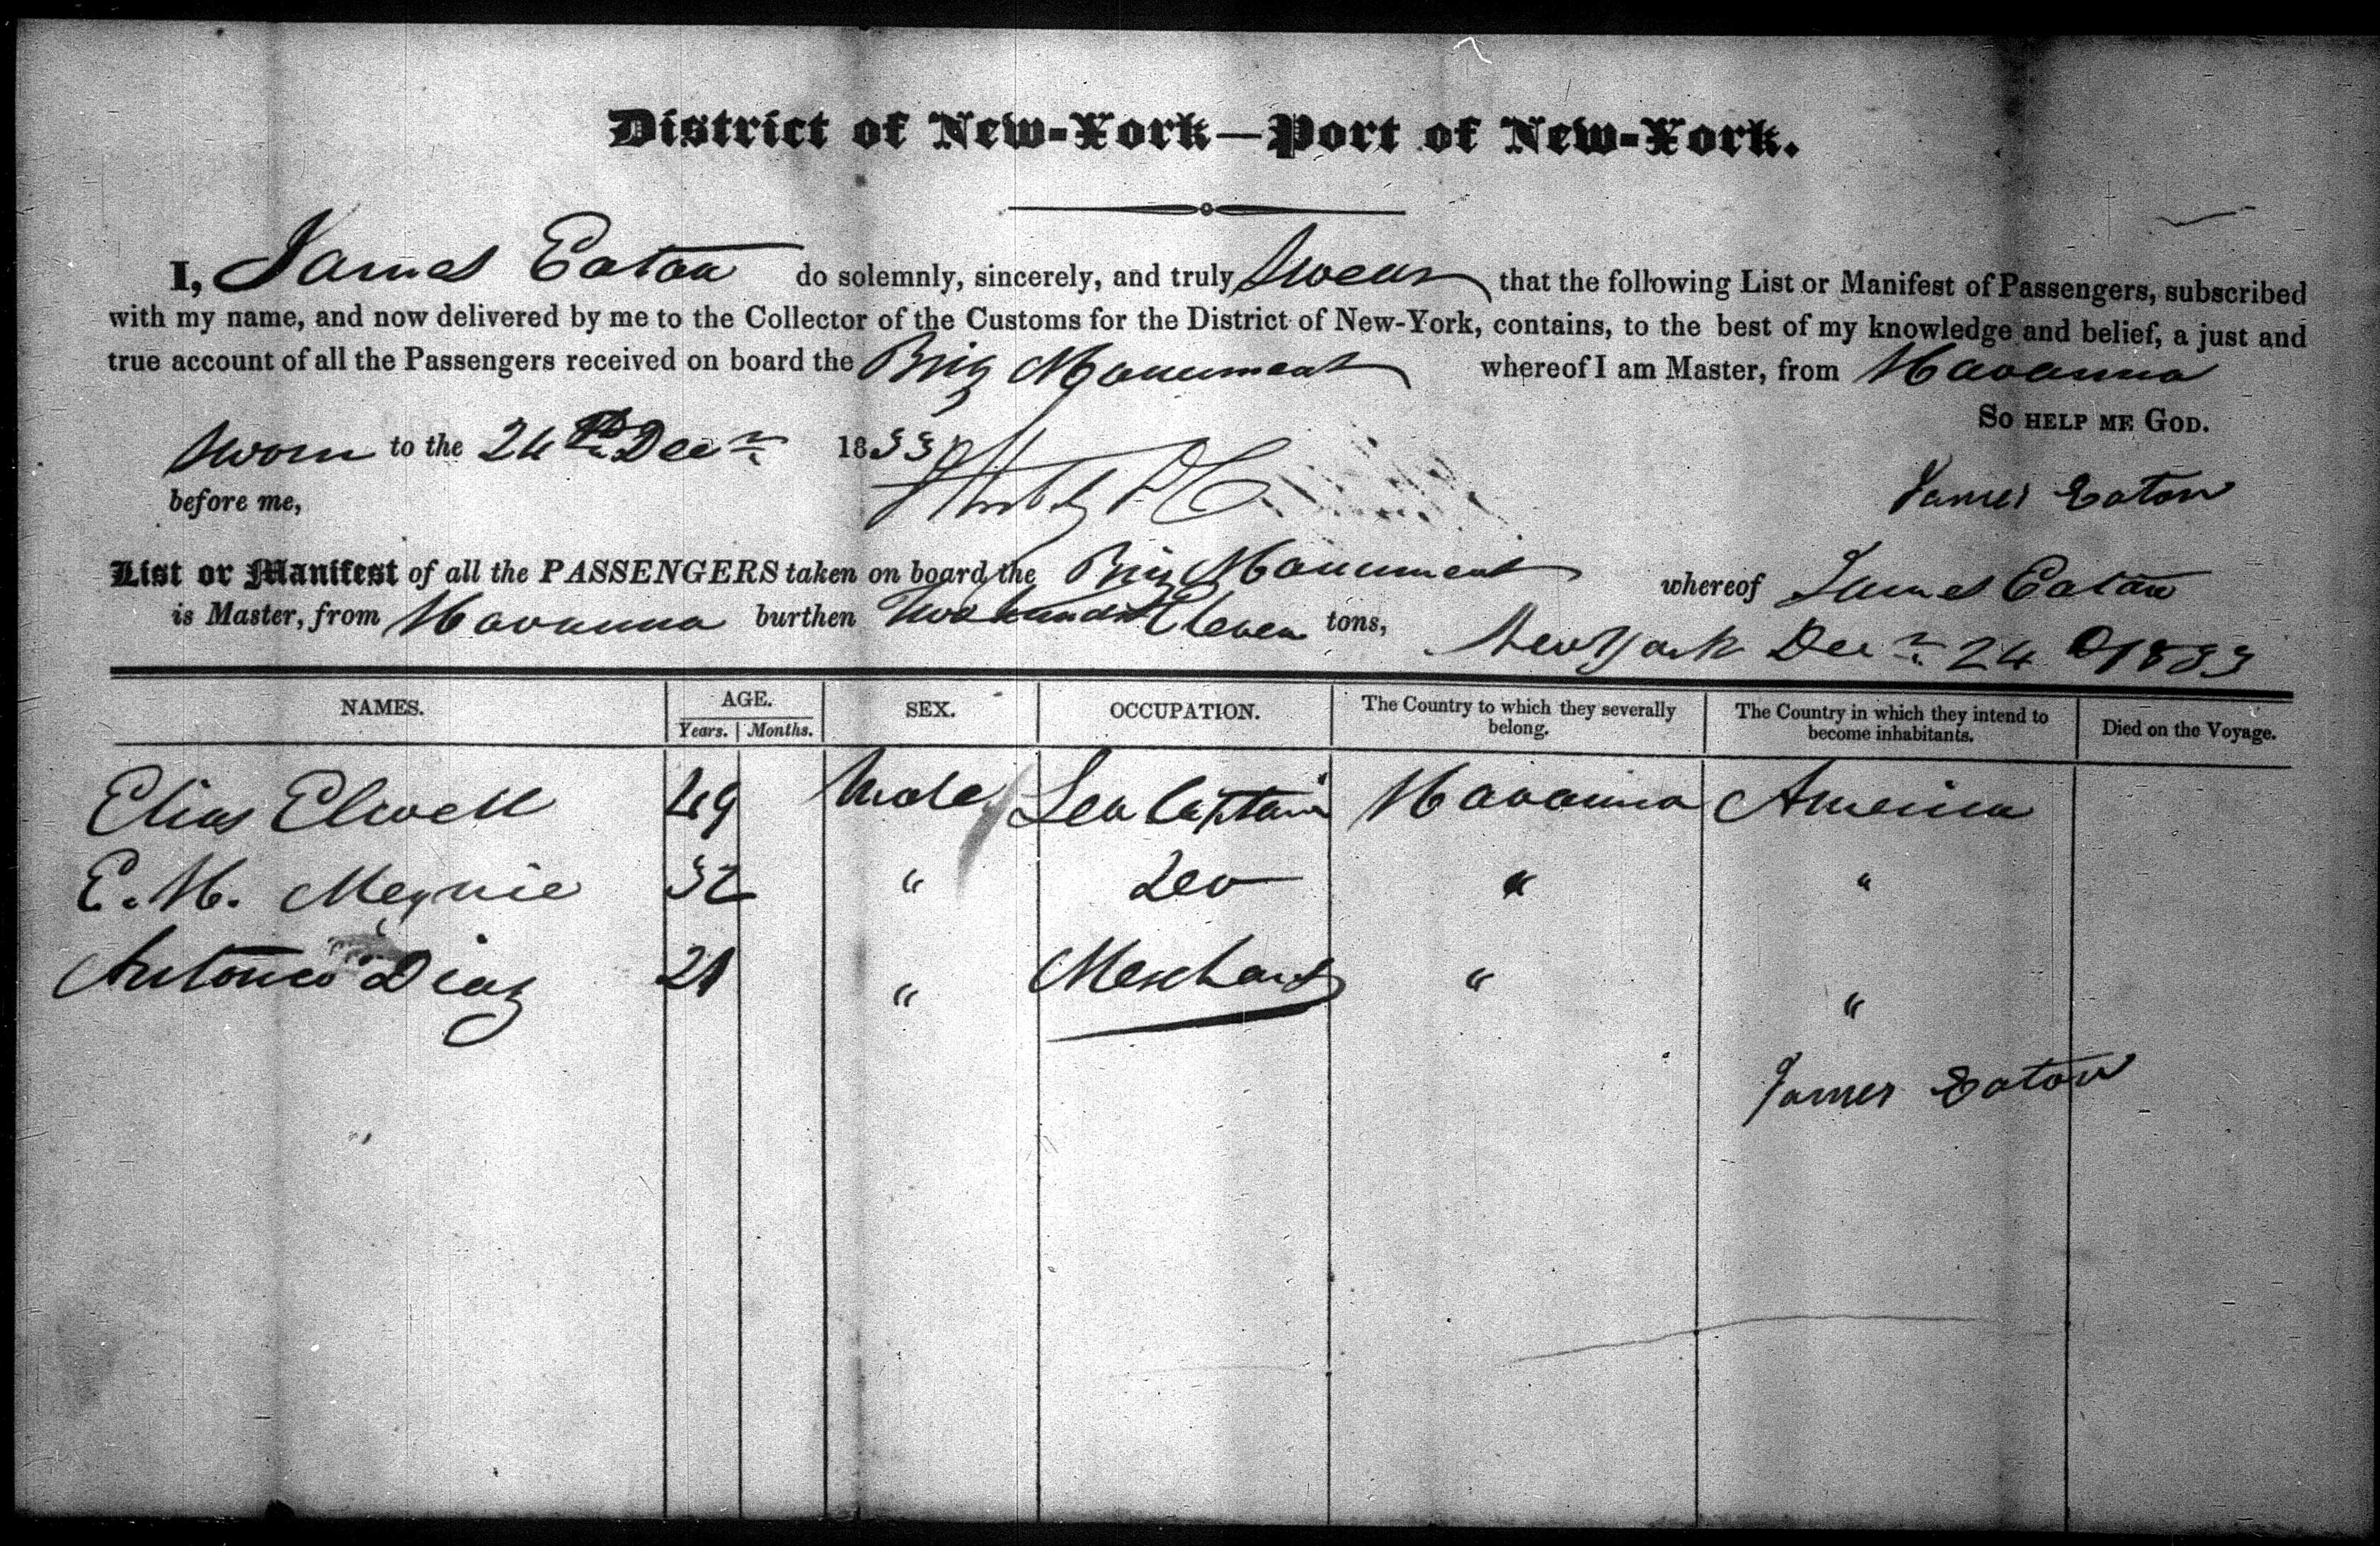 District of New-York—Port of New-York.
I, James Eaton do solemnly, sincerely, and truly Swear that the following List or Manifest of Passengers, subscribed
with my name, and now delivered by me to the Collector of the Customs for the District of New-York, contains, to the best of my knowledge and belief, a just and
true account of all the Passengers received on board the Brig Monument whereof I am Master, from Havanna
So help me God.
Sworn to the 24th Decr 1833
James Eaton
before me,
List or Manifest of all the PASSENGERS taken on board the Brig Monument whereof James Eaton
is Master, from Havanna burthen Two hundd Eleven tons,
New York Decr 24 1833
NAMES. AGE. SEX. OCCUPATION. The Country to which they severally belong. The Country in which they intend to become inhabitants. Died on the Voyage.
Years. Months.
Elias Elwell 49 Male Sea Captain Havanna America
E. H. 32 " " "
Antonio Diaz 21 " Merchant " "
James Eaton